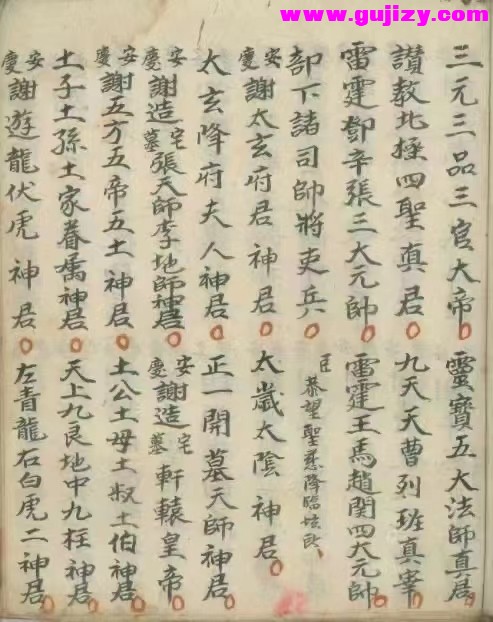 www.gujizy.com
三元三品三官大帝
靈寶五大法師真君
讚教北極四聖真君
九天天曹列班真宰
雷霆鄧辛張三大元帥
雷霆王馬趙関四大元帥
部下諸司帥將吏兵
臣恭望聖慈降臨
安慶謝太玄府君神君
太歲太陰神君
太玄降府夫人神君
正一開墓天師神君
安慶謝造宅墓張天師李地師神君
安慶謝造宅墓軒轅皇帝
安慶謝五方五帝五土神君
土公土母土奴土伯神君
土子土孫土家眷屬神君
天上九良地中九柱神君
安慶謝遊龍伏虎神君
左青龍右白虎二神君